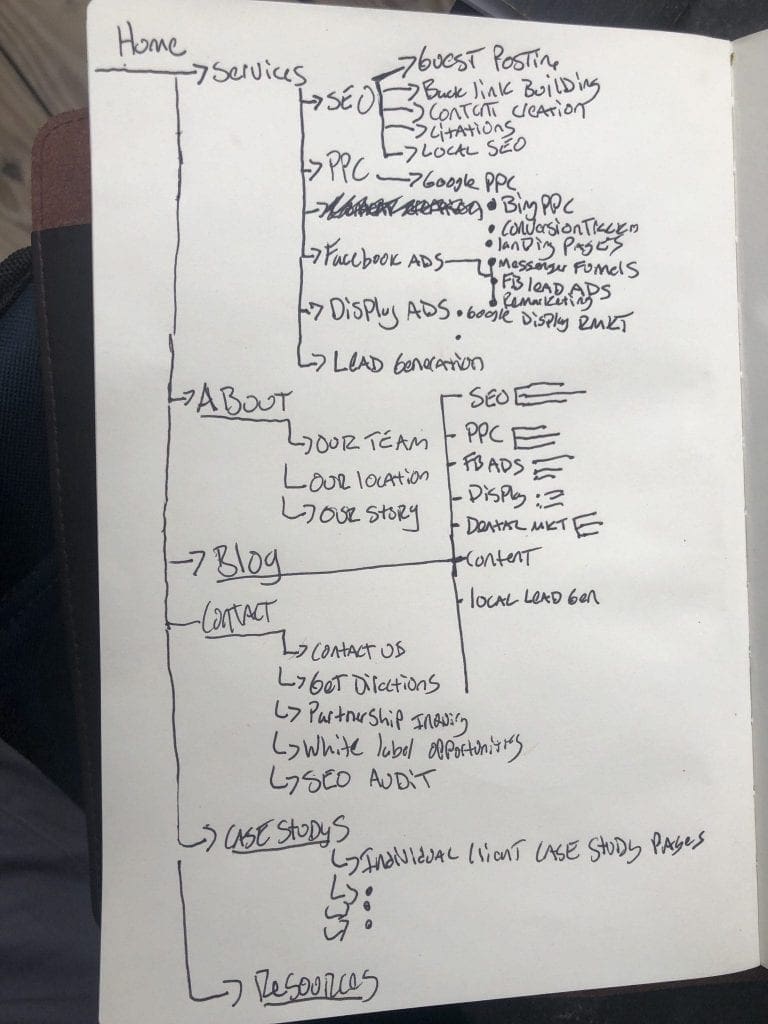 Home
Services
SEO
GUEST POSTING
Back link Building
CONTENT CREATION
CITATIONS
LOCAL SEO
PPC
Google PPC
Bing PPC
CONVERSION
landing PAGES
Facebook ADS
Messenger Funnels
FB LEAD ADS
Remarketing
Display ADS
Google Display RMKT
LEAD Generation
ABOUT
OUR TEAM
OUR location
OUR STORY
SEO
PPC
FB ADS
Display
DENTAL MKT
Content
LOCAL LEAD Gen
Blog
CONTACT
CONTACT US
GET Directions
Partnership Inquiry
White label opportunities
SEO AUDIT
CASE STUDYS
INDIVIDUAL Client CASE STUDY PAGES
RESOURCES